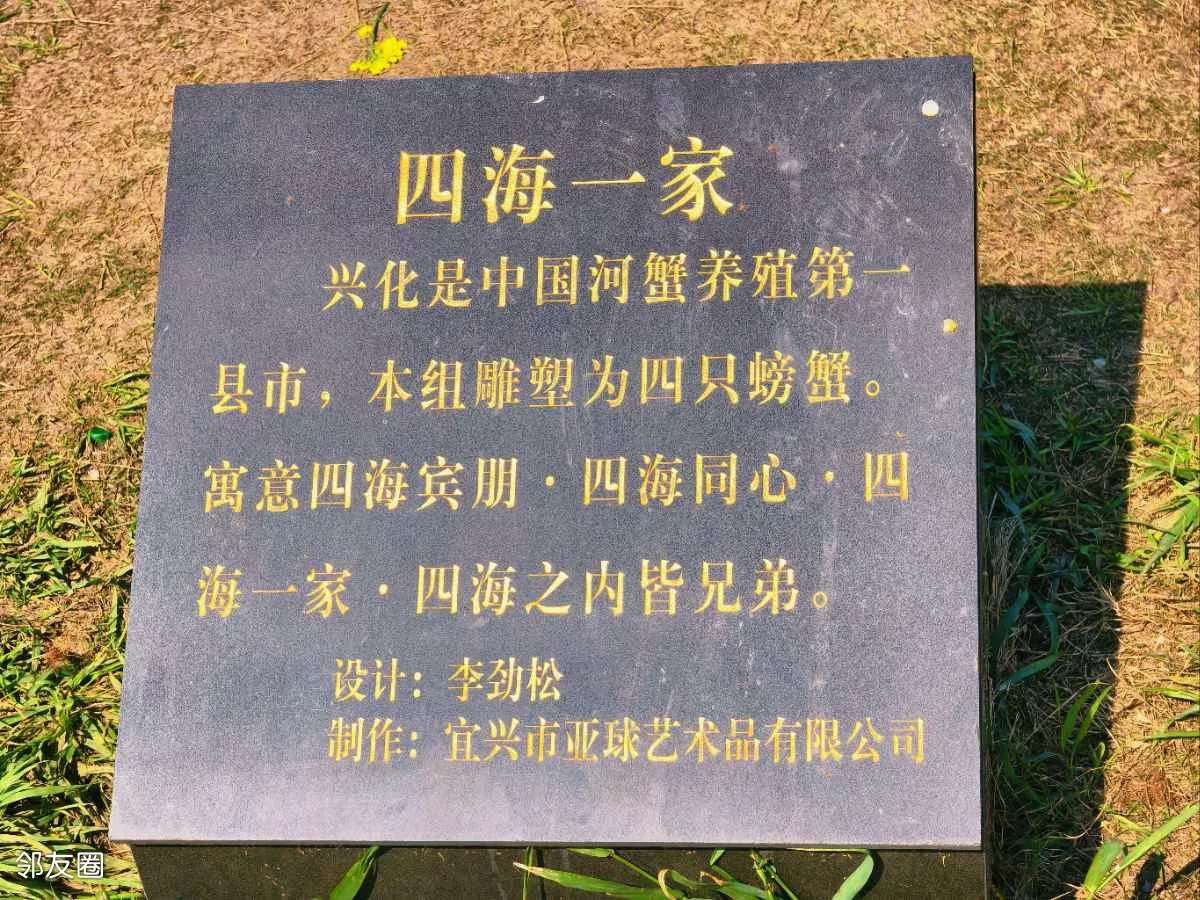 四海一家
兴化是中国河蟹养殖第一
县市，本组雕塑为四只螃蟹。
寓意四海宾朋·四海同心·四
海一家·四海之内皆兄弟。
设计：李劲松
制作：宜兴市亚球艺术品有限公司
邻友圈